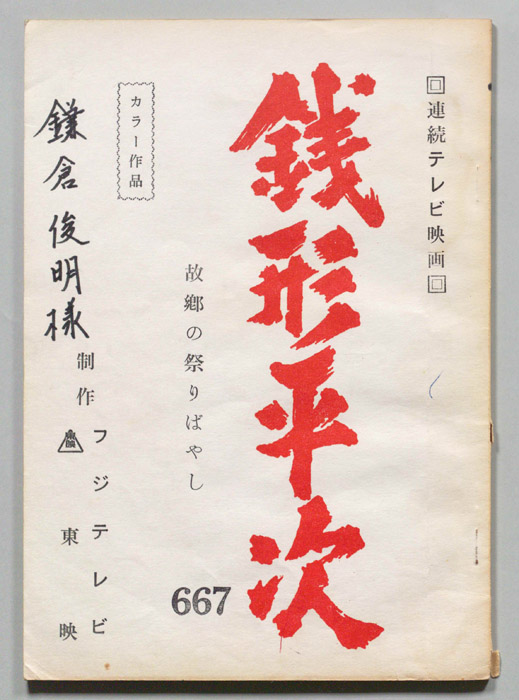 回連続テレビ映画回
銭形平次
667
故郷の祭りばやし
カラー作品
制作 フジテレビ
東映
鎌倉俊明様